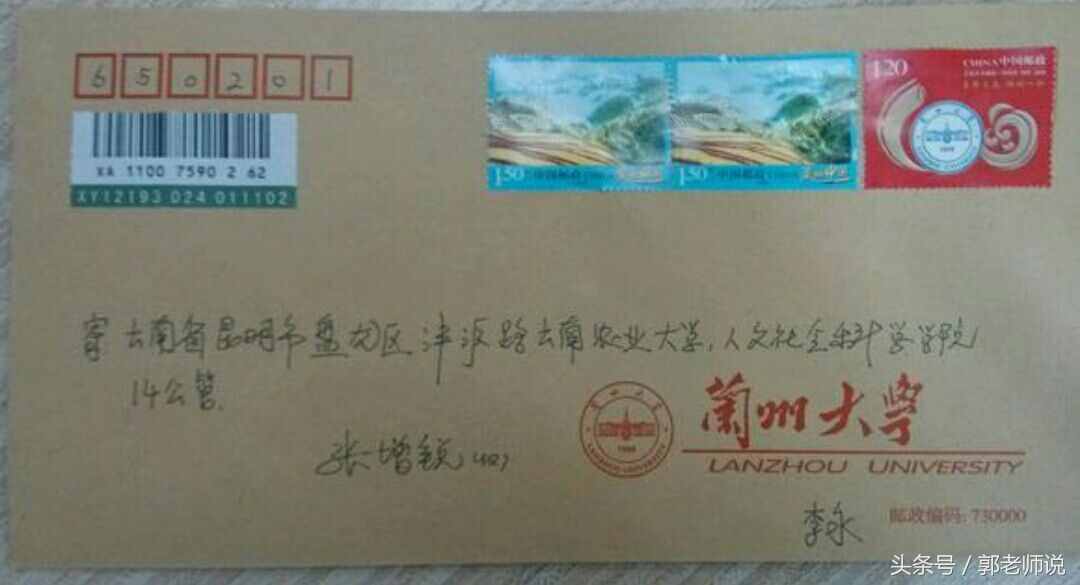 650201
1.50 中国邮政
1.50 中国邮政
CHINA 中国邮政
1.20
XA 1100 7590 2 62
XY12193 024 011102
寄云南省昆明市盘龙区沣源路云南农业大学,人文社会科学学院
14公管
张增锐(收)
兰州大学
1909
兰州大学
LANZHOU UNIVERSITY
李永
邮政编码:730000
头条号 / 郭老师说